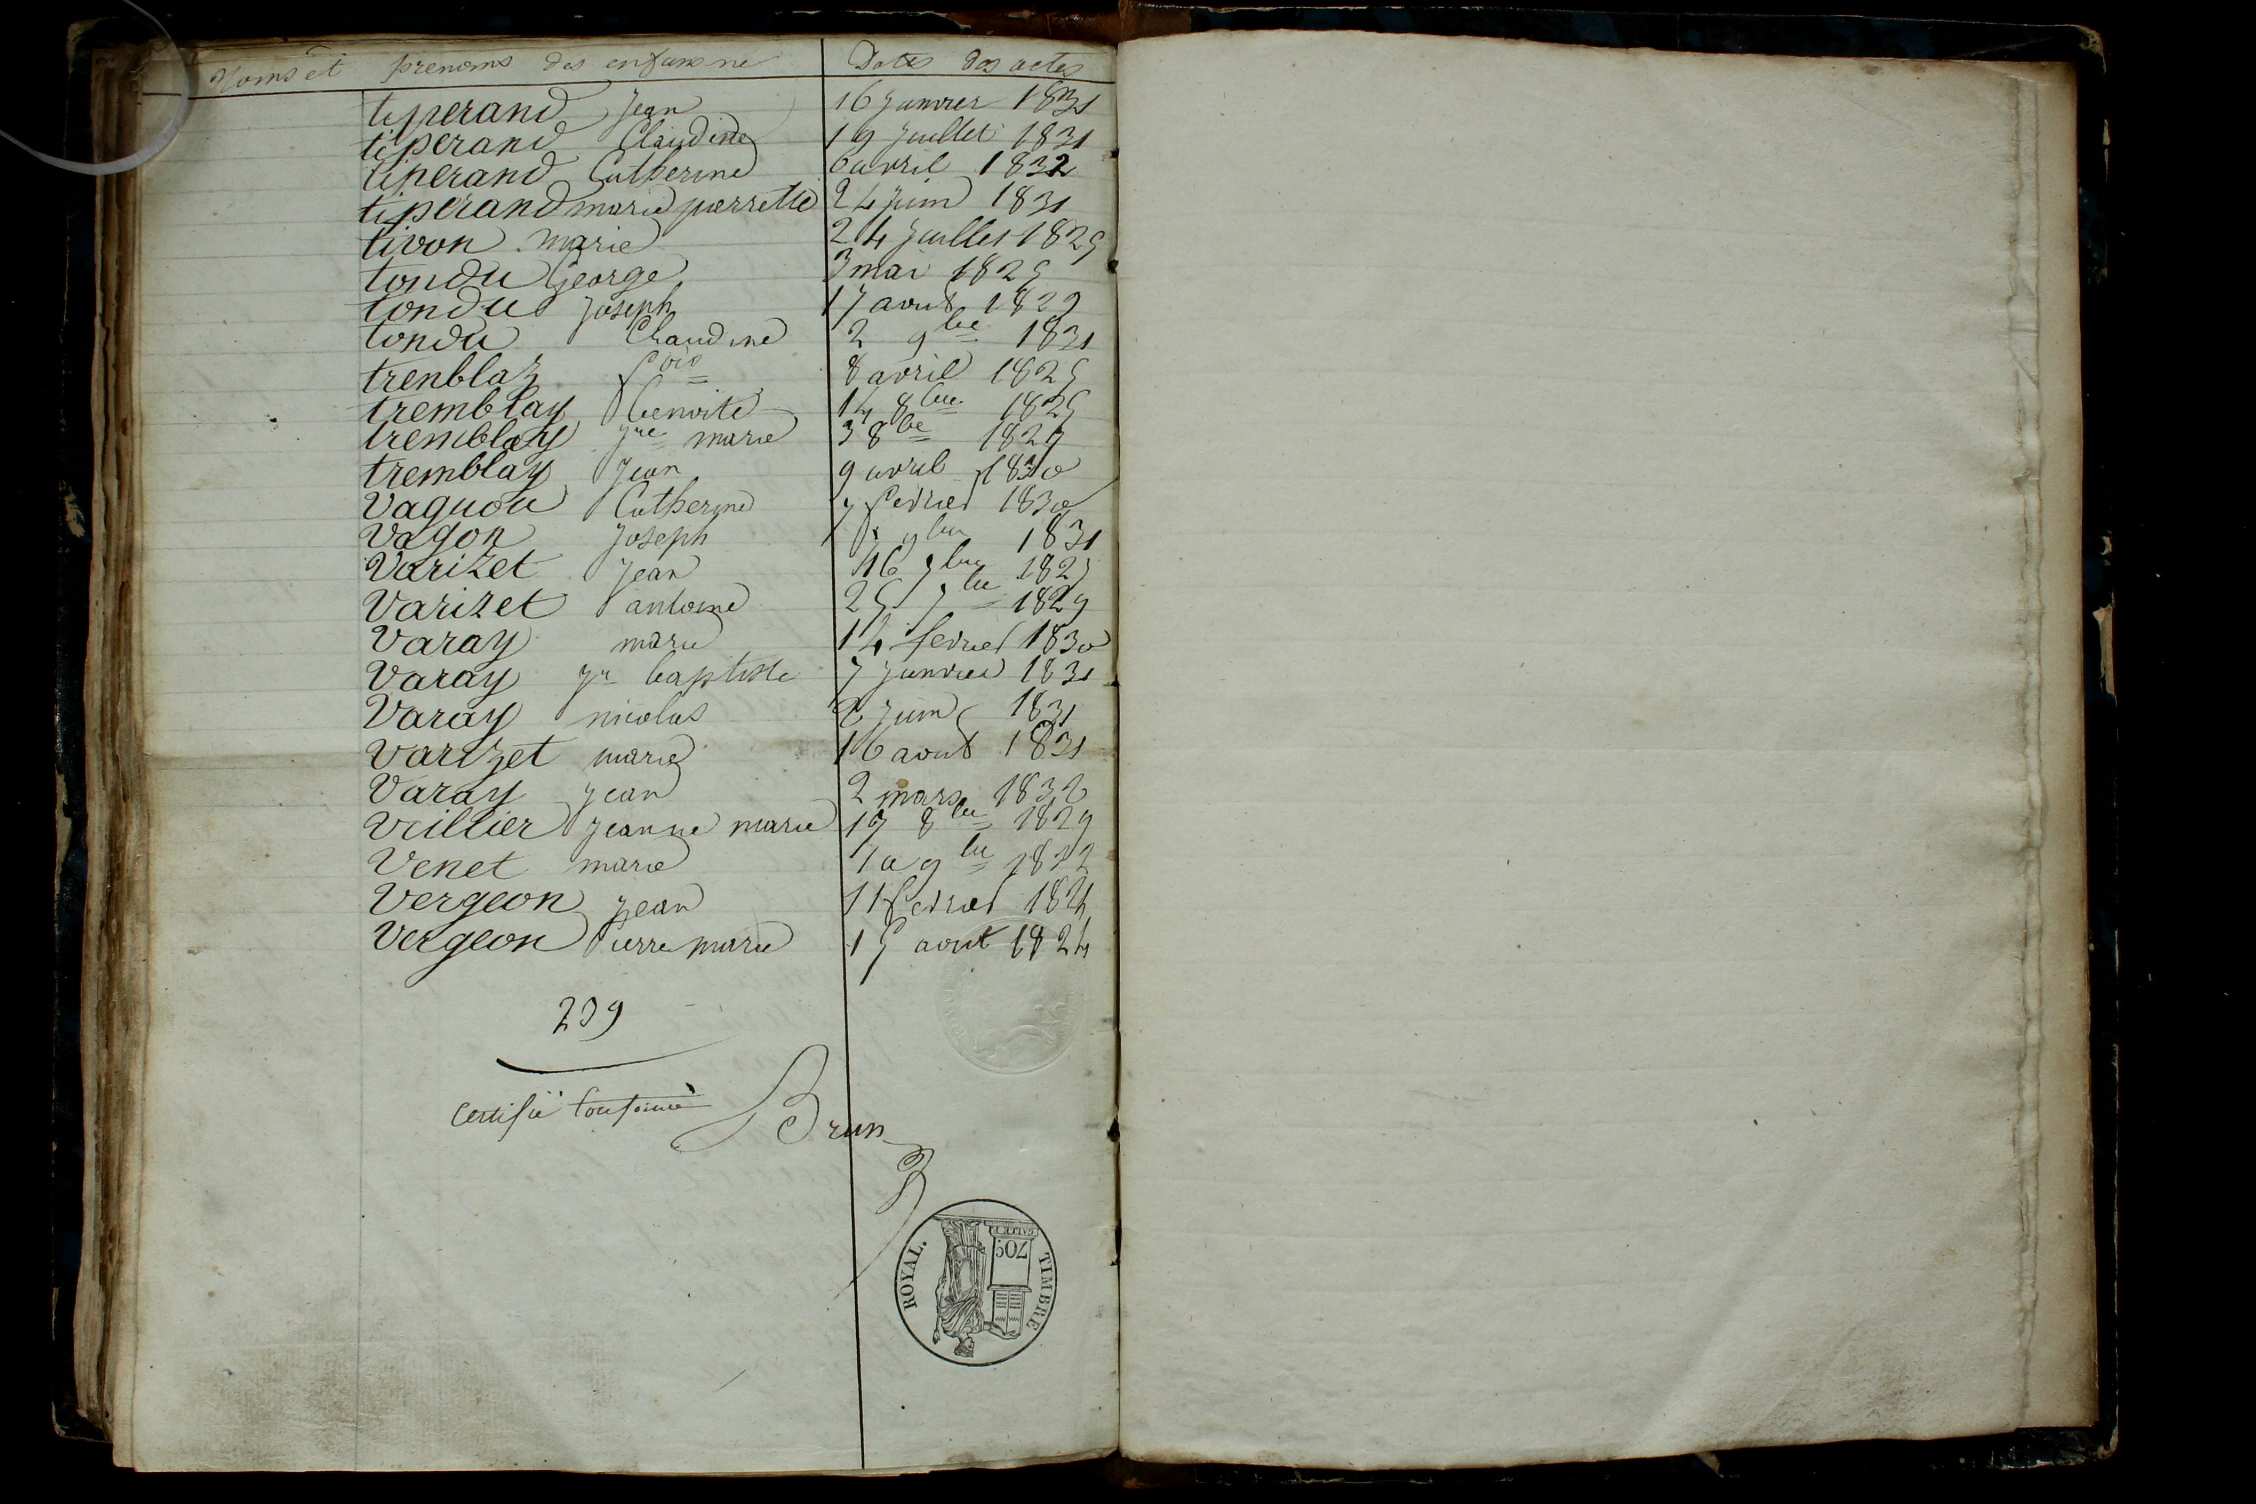 Noms et prenoms des enfans ne Dates des actes
tiperand Jean 16 janvier 1831
tiperand Claudine 19 juillet 1831
tiperand Catherine 6 avril 1832
tiperand marie pierrette 24 juin 1831
tivon marie 24 juillet 1829
tondu George 3 mai 1829
tondu Joseph 17 aout 1829
tondu Claudine 2 9bre 1831
trenblaz fois 8 avril 1829
tremblay benoite 14 8bre 1829
tremblay jne marie 3 8bre 1829
tremblay Jean 9 avril 1830
Vaguou Catherine 7 fevrier 1830
Vagon Joseph 9bre 1831
Varizet Jean 16 7bre 1829
Varizet antoine 29 7bre 1829
Varay marie 14 fevrier 1830
Varay jn baptiste 7 janvier 1831
Varay nicolas 2 juin 1831
Varizet marie 16 aout 1831
Varay Jean 2 mars 1832
Veillier jeanne marie 17 8bre 1829
Venet marie 10 9bre 1822
Vergeon jean 11 fevrier 1824
Vergeon Pierre marie 15 aout 1824
239
Certifié Conforme
Brun
TIMBRE ROYAL.
70c